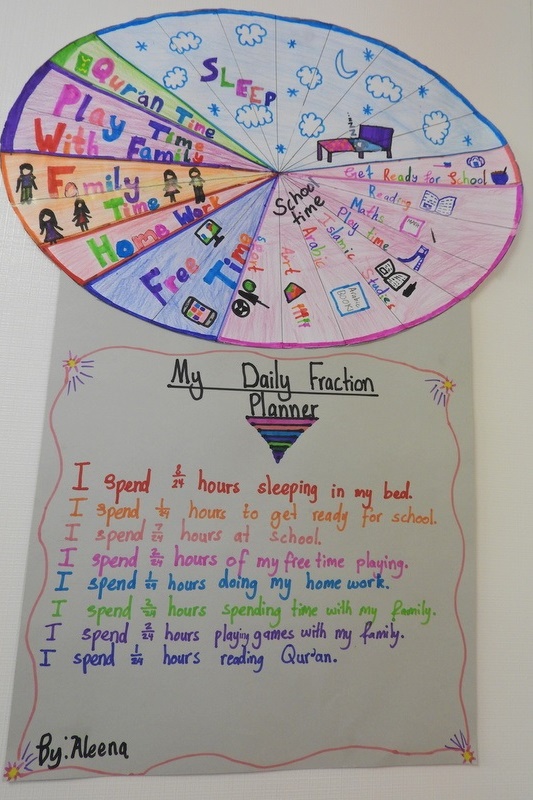 SLEEP
Qur'an Time
Play Time
With Family
Family
Time
Home Work
Free Time
School
time
Get Ready for School
Reading
Maths
Play time
Islamic Studies
Arabic
Arabic
BOOK
Art
Sport
My Daily Fraction
Planner
I spend 8/24 hours sleeping in my bed.
I spend 1/24 hours to get ready for school.
I spend 7/24 hours at school.
I spend 2/24 hours of my free time playing.
I spend 1/24 hours doing my home work.
I spend 2/24 hours spending time with my family.
I spend 2/24 hours playing games with my family.
I spend 1/24 hours reading Qur'an.
By: Aleena